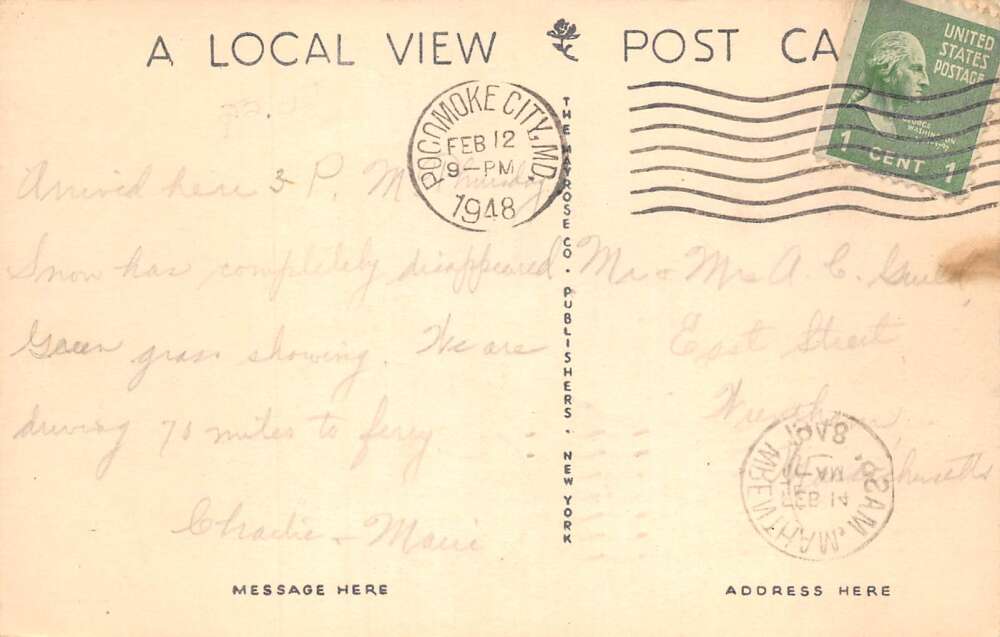 A LOCAL VIEW POST CA
UNITED
STATES
POSTAGE
GEORGE
WASHINGTON
1 CENT 1
POCOMOKE CITY, MD.
FEB 12
9-PM
1948
Arrived here 3 P. M. Thursday
Snow has completely disappeared
Green grass showing. We are
driving 70 miles to ferry
Charlie - Marie
THE MAYROSE CO. PUBLISHERS. NEW YORK
Mr + Mrs A. C.
East Street
Wrentham
Massachusetts
WRENTHAM, MASS.
FEB 14
1948
MESSAGE HERE
ADDRESS HERE